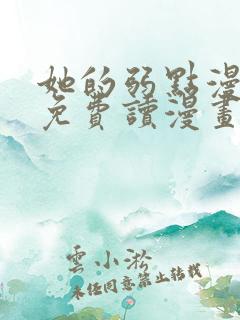 她的弱點漫
免費讀漫畫
雲小淞
未經同意禁止轉載